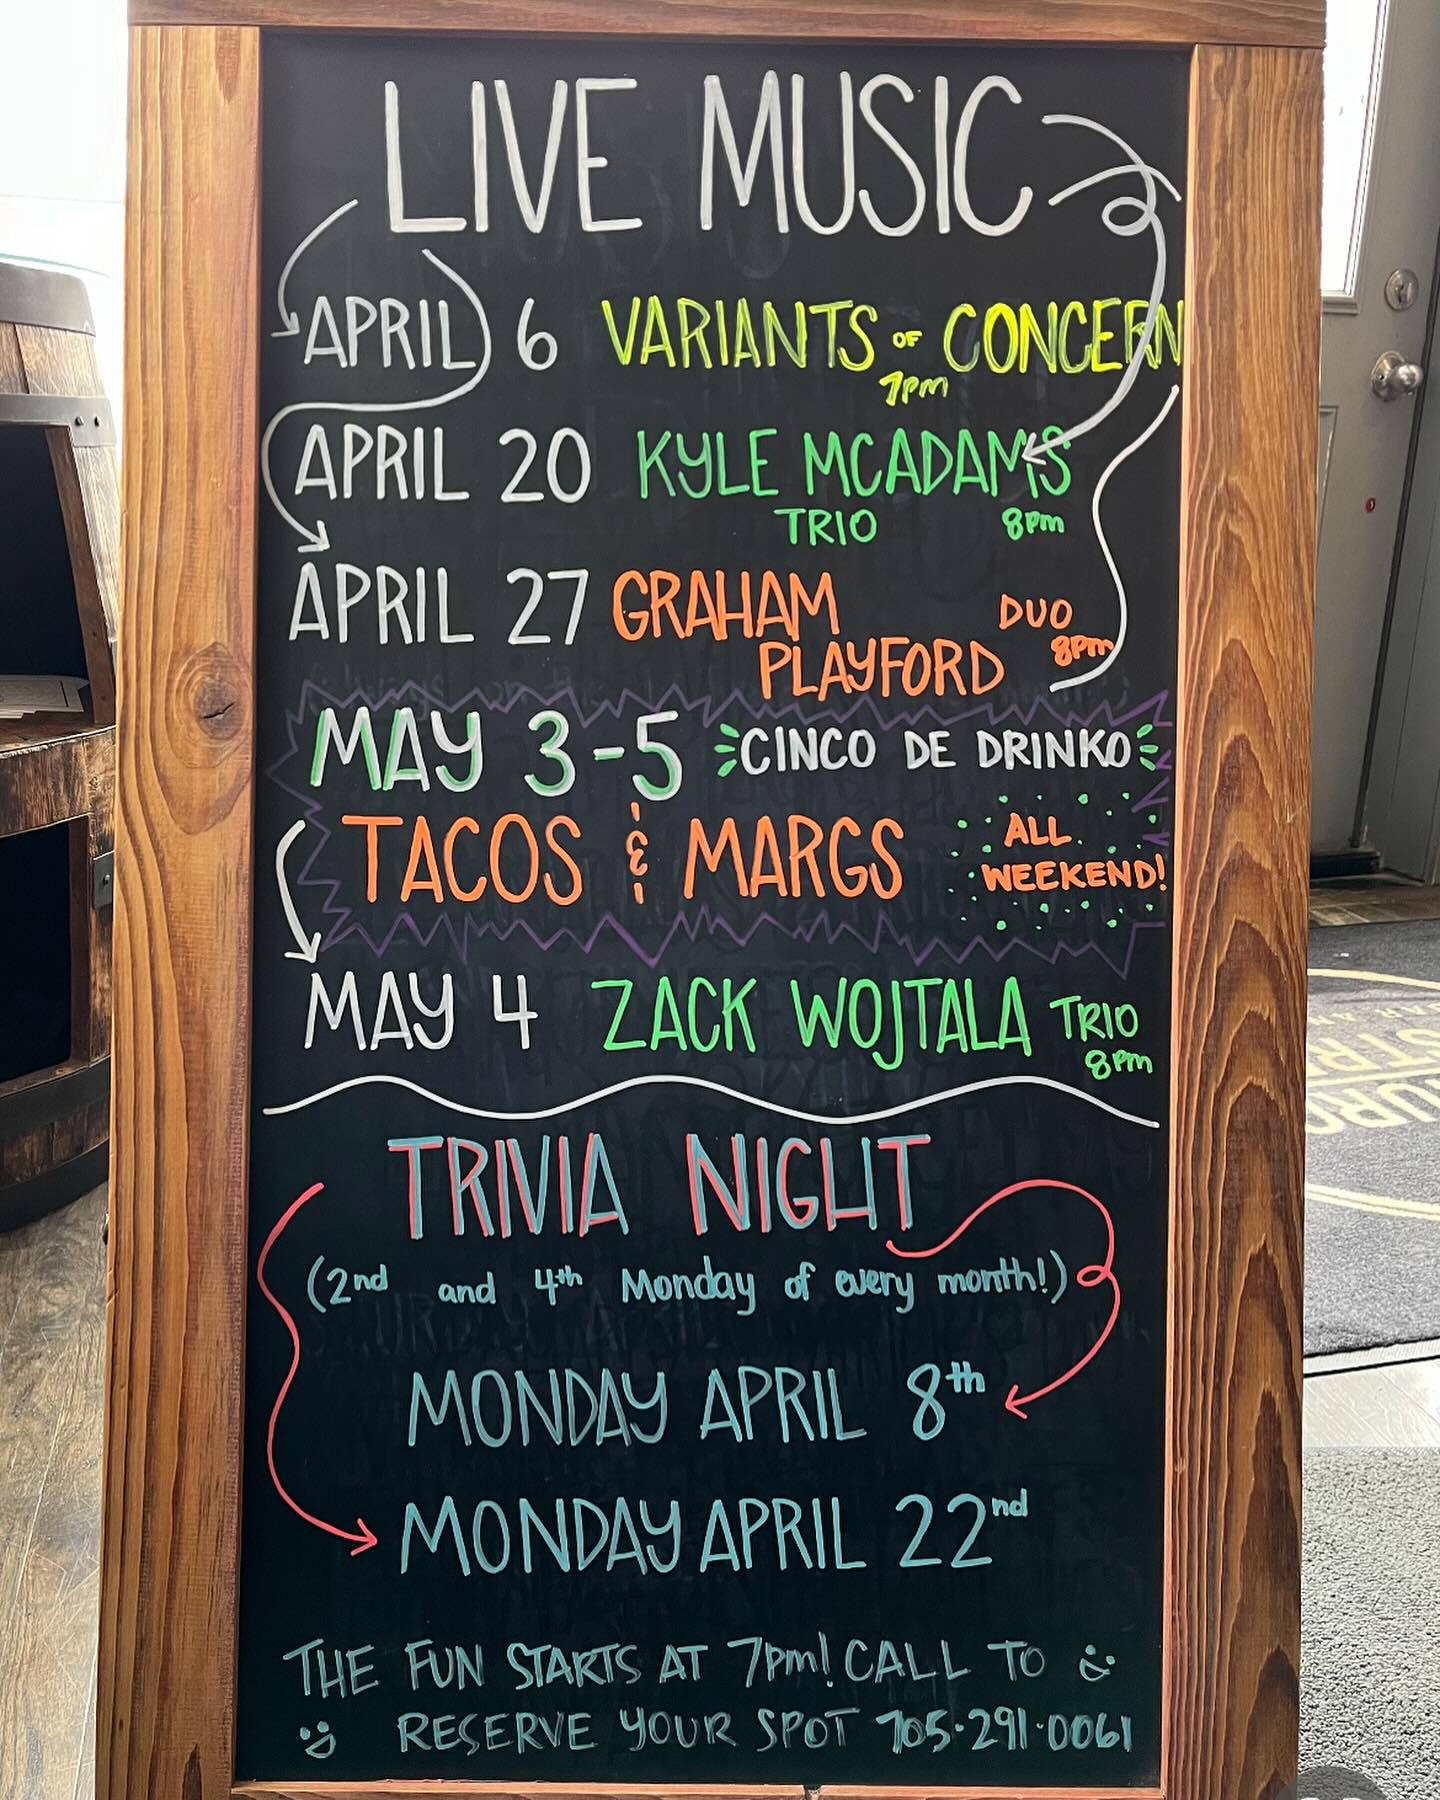 LIVE MUSIC
APRIL 6 VARIANTS OF CONCERN
7pm
APRIL 20 KYLE MCADAMS
TRIO 8pm
APRIL 27 GRAHAM PLAYFORD DUO
8pm
MAY 3-5 CINCO DE DRINKO
TACOS & MARGS ALL WEEKEND!
MAY 4 ZACK WOJTALA TRIO
8pm
TRIVIA NIGHT
(2nd and 4th Monday of every month!)
MONDAY APRIL 8th
MONDAY APRIL 22nd
THE FUN STARTS AT 7pm! CALL TO
RESERVE YOUR SPOT 705·291·0061